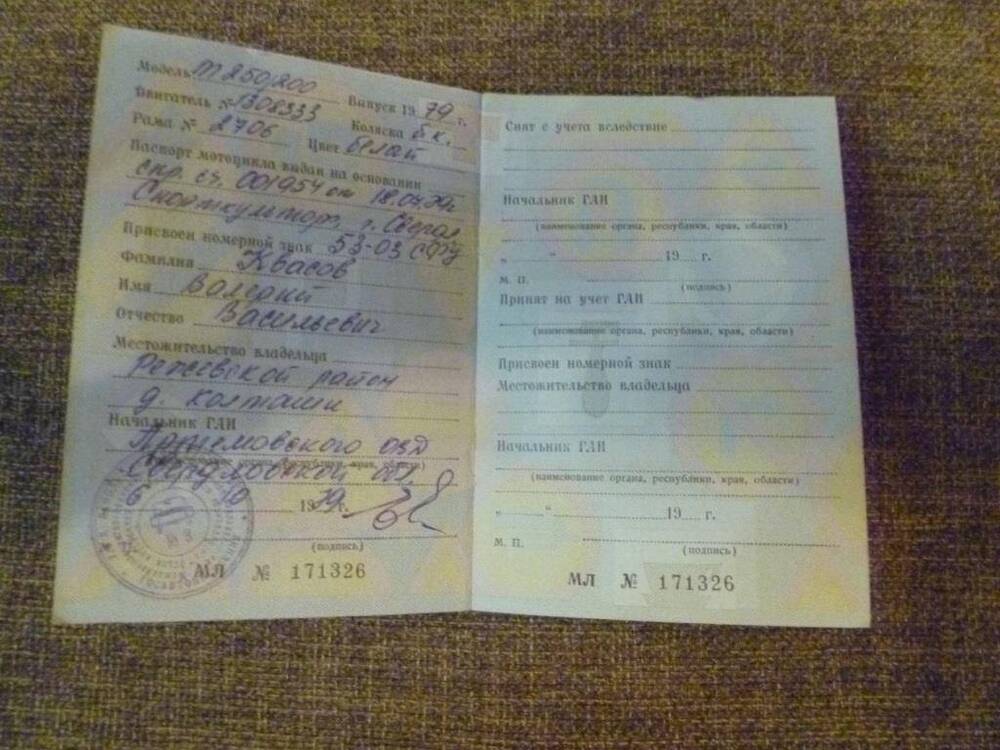 Модель Т 250/200 Выпуск 1979 г.
Двигатель № 1308333 Коляска б.к.
Рама № 2706 Цвет белый
Паспорт мотоцикла выдан на основании
спр. сч. 001954 от 18.04.79г
г. Свердл
Присвоен номерной знак 53-03
Фамилия Квасов
Имя Валерий
Отчество Васильевич
Местожительство владельца
Режевской район
д. Колташи
Начальник ГАИ
Артемовского
Свердловской обл.
6 10 1979 г.
(подпись)
МЛ № 171326
Снят с учета вследствие
Начальник ГАИ
(наименование органа, республики, края, области)
„ “ 19 г.
М. П. (подпись)
Принят на учет ГАИ
(наименование органа, республики, края, области)
Присвоен номерной знак
Местожительство владельца
Начальник ГАИ
(наименование органа, республики, края, области)
„ “ 19 г.
М. П. (подпись)
МЛ № 171326